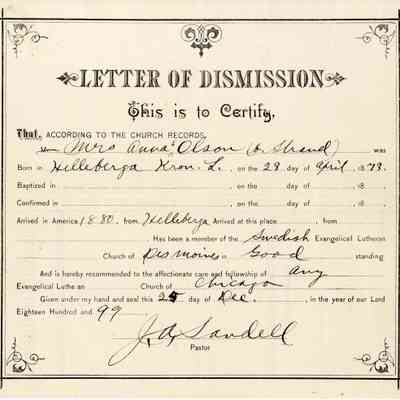 LETTER OF DISMISSION
This is to Certify,
That, ACCORDING TO THE CHURCH RECORDS,
Mrs Anna Olson (b. Strand) was
Born in Hilleberga Kron. L. , on the 28 day of April , 1873.
Baptized in , on the day of , 18
Confirmed in , on the day of , 18
Arrived in America 1880 , from Hilleberga Arrived at this place , from
Has been a member of the Swedish Evangelical Lutheran
Church of Des moines in Good standing
And is hereby recommended to the affectionate care and fellowship of any
Evangelical Luthe an Church of Chicago
Given under my hand and seal this 25 day of Dec. , in the year of our Lord
Eighteen Hundred and 99
J. A. Sandell
Pastor